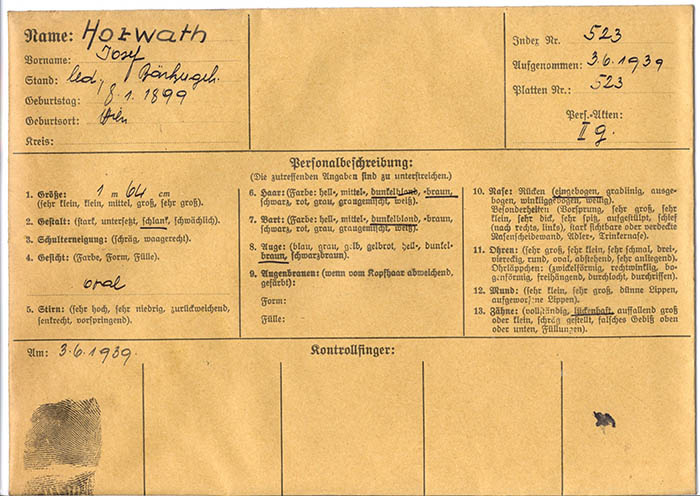 Name: Horwath
Vorname: Josef
Stand: led.,
Geburtstag: 8. 1. 1899
Geburtsort:
Kreis:
Index Nr. 523
Aufgenommen: 3.6.1939
Platten Nr.: 523
Pers.-Akten:
II g.
Personalbeschreibung:
(Die zutreffenden Angaben sind zu unterstreichen.)
1. Größe: 1 m 64 cm
(sehr klein, klein, mittel, groß, sehr groß).
2. Gestalt: (stark, untersetzt, schlank, schwächlich).
3. Schulterneigung: (schräg, waagerecht).
4. Gesicht: (Farbe, Form, Fülle).
oval
5. Stirn: (sehr hoch, sehr niedrig, zurückweichend,
senkrecht, vorspringend).
6. Haar: (Farbe: hell-, mittel-, dunkelblond, -braun,
schwarz, rot, grau, graugemischt, weiß).
7. Bart: (Farbe: hell-, mittel-, dunkelblond, -braun,
schwarz, rot, grau, graugemischt, weiß).
8. Auge: (blau, grau, gelb, gelbrot, hell-, dunkel-
braun, schwarzbraun).
9. Augenbrauen: (wenn vom Kopfhaar abweichend,
gefärbt):
Form:
Fülle:
10. Nase: Rücken (eingebogen, gradlinig, ausge-
bogen, winkliggebogen, wellig).
Besonderheiten (Vorsprung, sehr groß, sehr
klein, sehr dick, sehr spitz, aufgestülpt, schief
(nach rechts, links), stark sichtbare oder verdeckte
Nasenscheidewand, Adler-, Trinkernase).
11. Ohren: (sehr groß, sehr klein, sehr schmal, drei-,
viereckig, rund, oval, abstehend, sehr anliegend).
Ohrläppchen: (zwickelförmig, rechtwinklig, bo-
genförmig, freihängend, durchlocht, durchrissen).
12. Mund: (sehr klein, sehr groß, dünne Lippen,
aufgeworfene Lippen).
13. Zähne: (vollständig, lückenhaft, auffallend groß
oder klein, schräg gestellt, falsches Gebiß oben
oder unten, Füllungen).
Am: 3.6.1939.
Kontrollfinger: